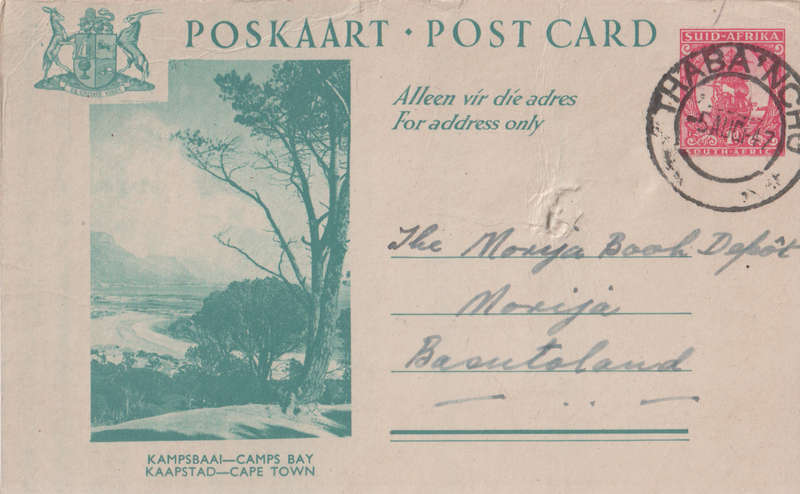 POSKAART · POST CARD
SUID-AFRIKA
THABA 'NCHU
AUG
SOUTH AFRICA
Alleen vir die adres
For address only
The Morija Book Depôt
Morija
Basutoland
KAMPSBAAI—CAMPS BAY
KAAPSTAD—CAPE TOWN